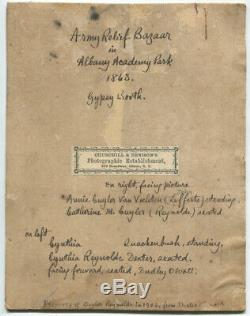 Army Relief Bazaar
in
Albany Academy Park
1863.
Gypsy Booth.
CHURCHILL & DENISON'S
Photographic Establishment,
on right, facing picture
Annie Cuyler Van Vechten (Lefferts) standing,
Catherine M. Cuyler (Reynolds) seated
on left
Cynthia Quackenbush, standing,
Cynthia Reynolds Dexter, seated.
facing forward, seated, Dudley Olcott.
of Cuyler Reynolds in 1902, from